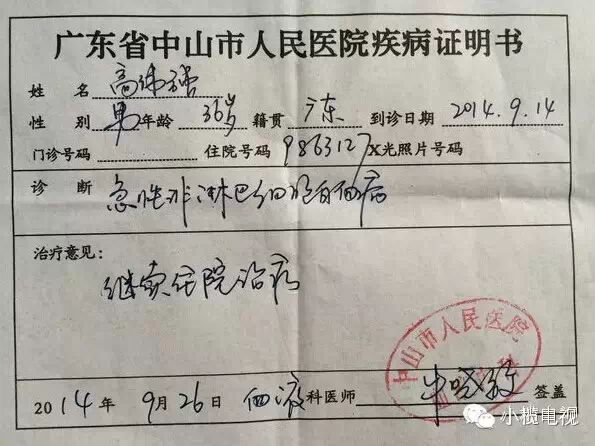 广东省中山市人民医院疾病证明书
姓 名 高
性 别 男 年龄 36岁 籍贯 广东 到诊日期 2014.9.14
门诊号码 住院号码 9863127 X光照片号码
诊 断 急性非淋巴细胞白血病
治疗意见：
继续住院治疗
中山市人民医院
2014 年 9 月 26 日 血液 科医师 签盖
小榄电视